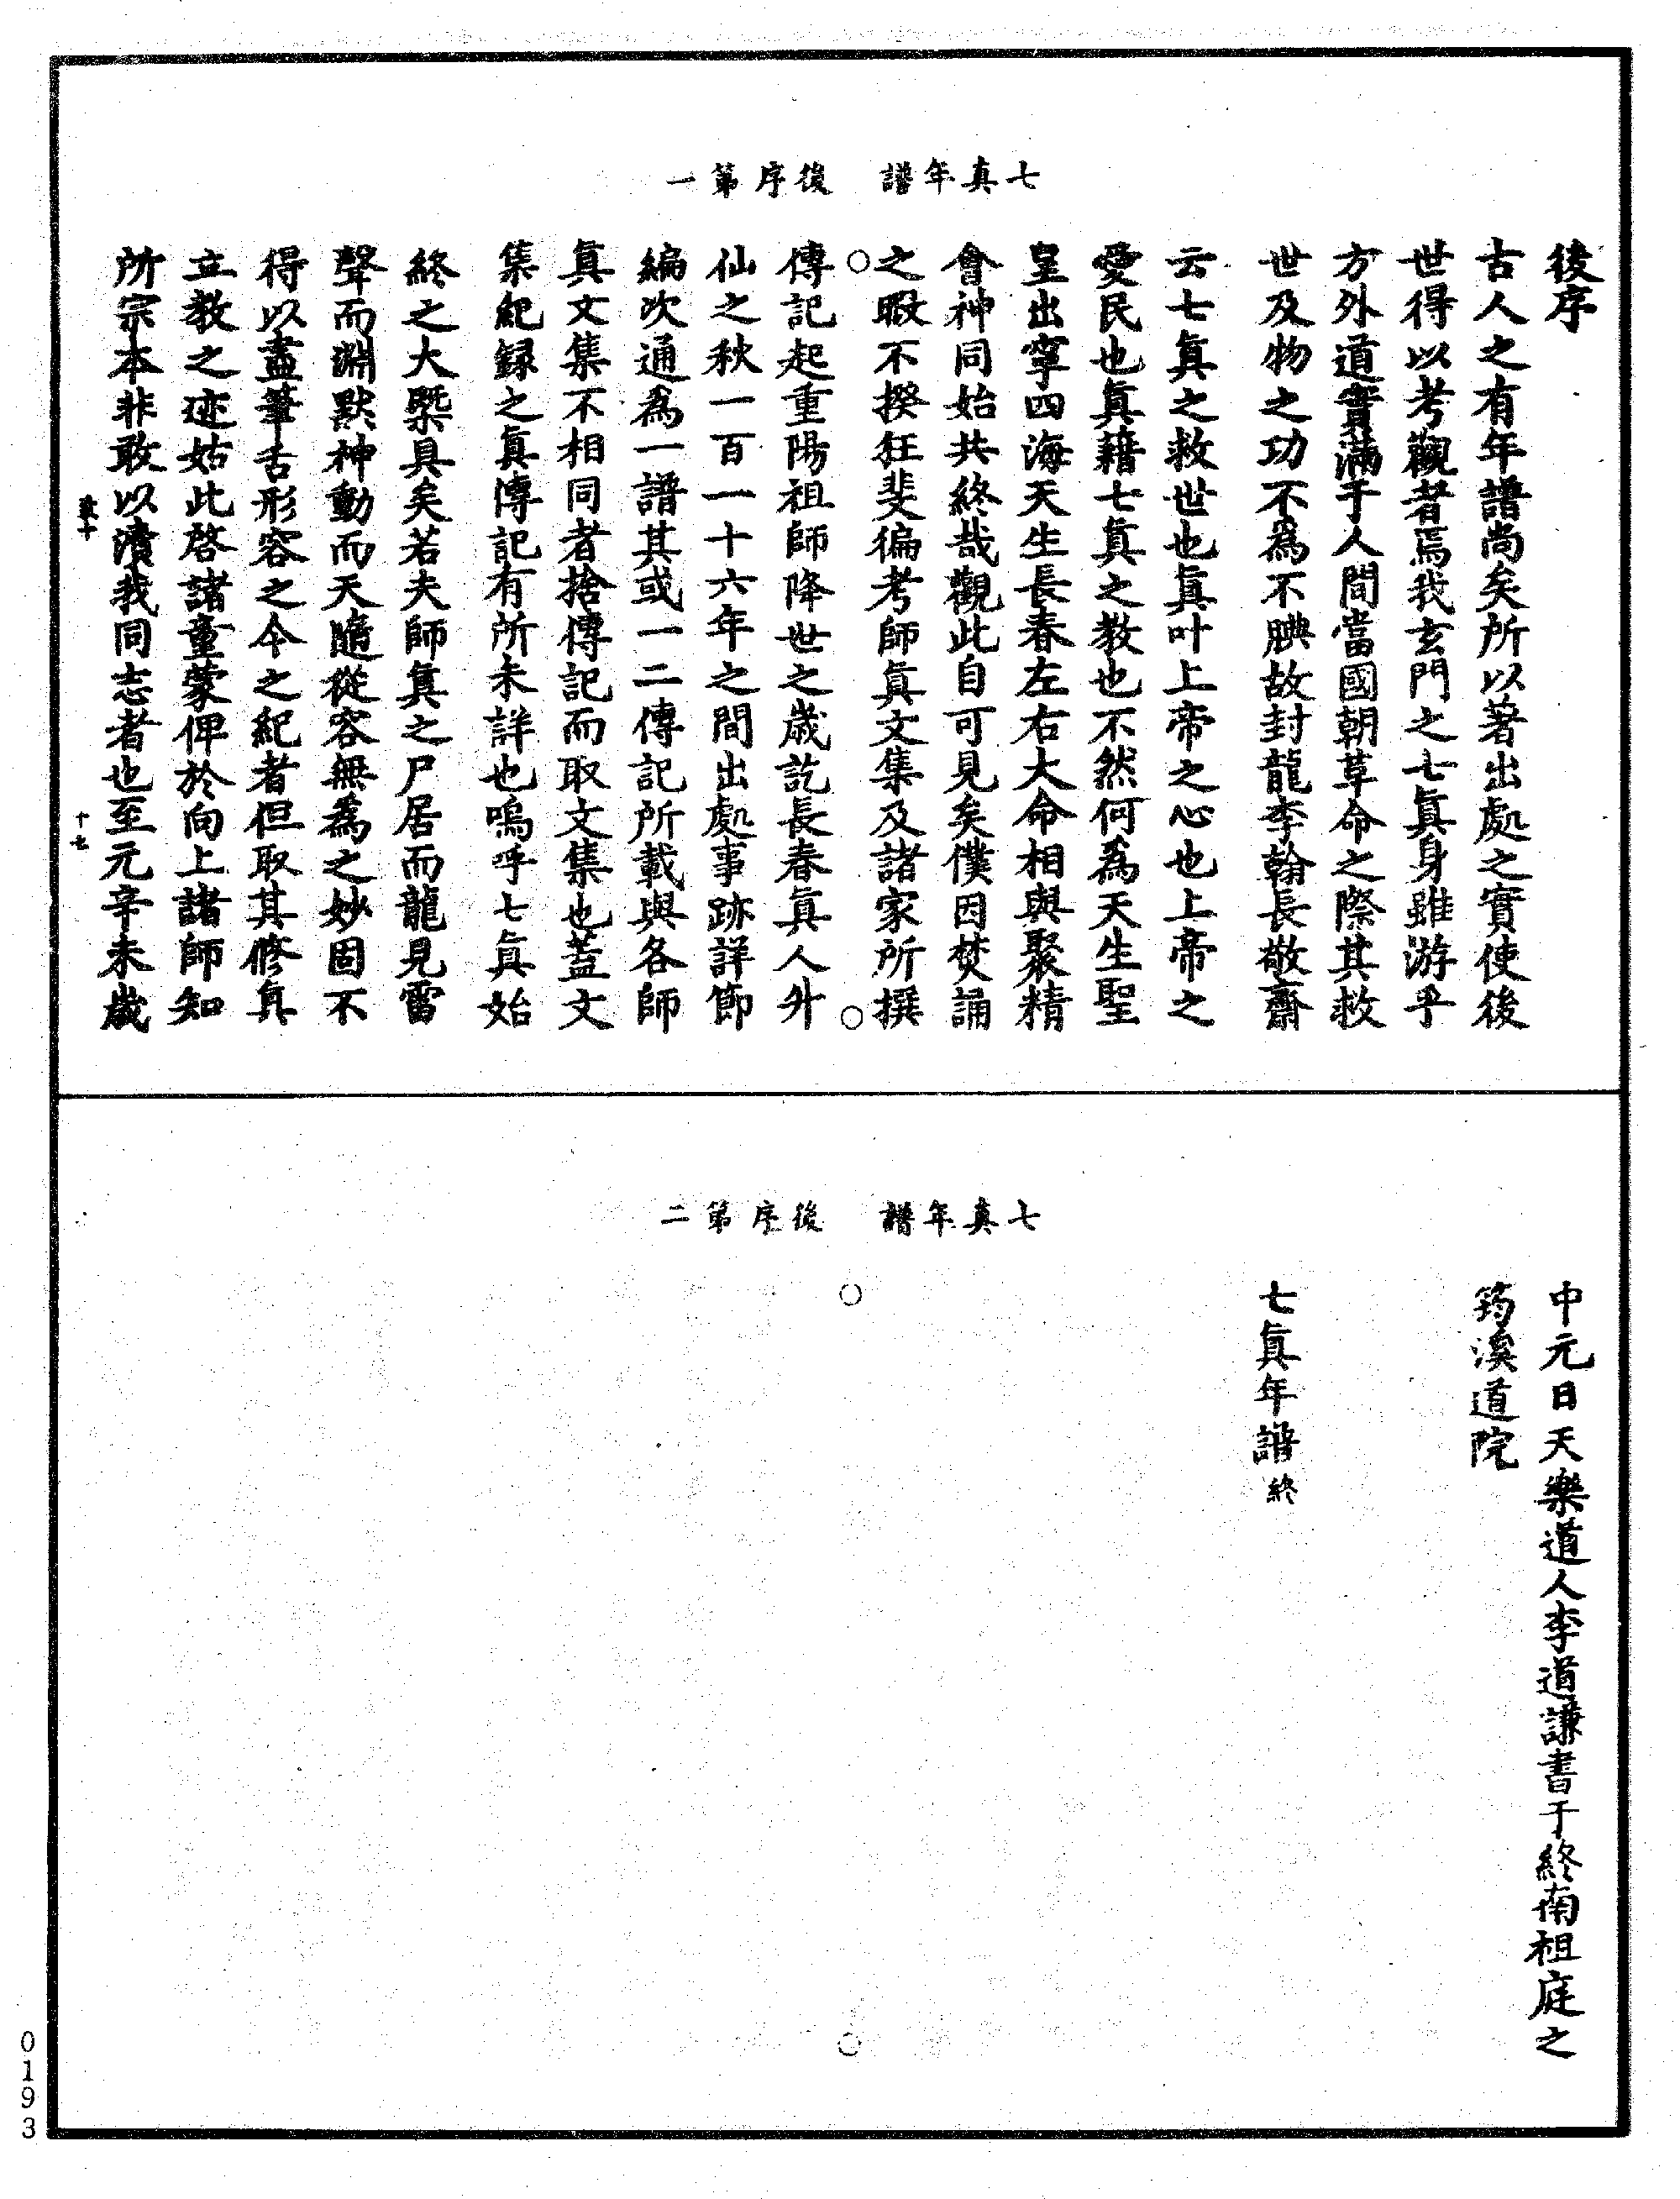 七真年譜　後序第一
後序
古人之有年譜尚矣所以著出處之實使後
世得以考觀者焉我玄門之七真身雖游乎
方外道實滿于人間當國朝革命之際其救
世及物之功不為不腆故封龍李翰長敬齋
云七真之救世也真叶上帝之心也上帝之
愛民也真藉七真之教也不然何為天生聖
皇出寧四海天生長春左右大命相與聚精
會神同始共終哉觀此自可見矣僕因焚誦
之暇不揆狂斐徧考師真文集及諸家所撰
傳記起重陽祖師降世之歲訖長春真人升
仙之秋一百一十六年之間出處事跡詳節
編次通為一譜其或一二傳記所載與各師
真文集不相同者捨傳記而取文集也蓋文
集紀録之真傳記有所未詳也嗚呼七真始
終之大槩具矣若夫師真之尸居而龍見雷
聲而淵默神動而天隨從容無為之妙固不
得以盡筆舌形容之今之紀者但取其修真
立教之迹姑此啓諸童蒙俾於向上諸師知
所宗本非敢以瀆我同志者也至元辛未歲
十七
七真年譜　後序第二
中元日天樂道人李道謙書于終南祖庭之
筠溪道院
七真年譜終
0193